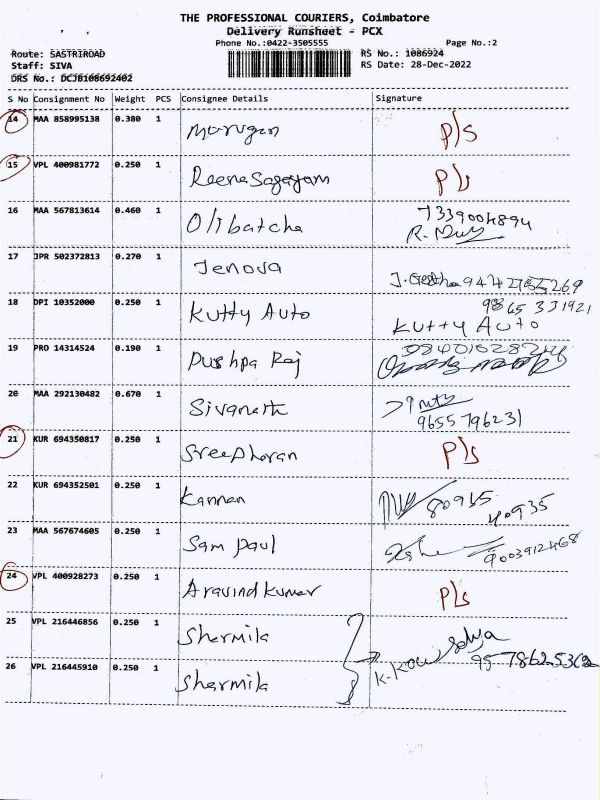 THE PROFESSIONAL COURIERS, Coimbatore
Delivery Runsheet - PCX
Phone No.:0422-3505555 Page No.:2
Route: SASTRIROAD RS No.: 1086924
Staff: SIVA RS Date: 28-Dec-2022
DRS No.: DCJB108692402
S No Consignment No Weight PCS Consignee Details Signature
14 MAA 858995138 0.380 1 Murugan P/s
15 VPL 400981772 0.250 1 Reena Sagayam P/s
16 MAA 567813614 0.460 1 Olibatcha 7339004894
17 JPR 502372813 0.270 1 Jenova
18 DPI 10352000 0.250 1 Kutty Auto 9865 331921
Kutty Auto
19 PRO 14314524 0.190 1 Pushpa Raj
20 MAA 292130482 0.670 1 Sivanath
9655796231
21 KUR 694350817 0.250 1 Sreedharan P/s
22 KUR 694352501 0.250 1 Kannan 80965
40935
23 MAA 567674605 0.250 1 Sam paul 9003912468
24 VPL 400928273 0.250 1 Aravind Kumar P/s
25 VPL 216446856 0.250 1 Shermila
26 VPL 216445910 0.250 1 Shermila